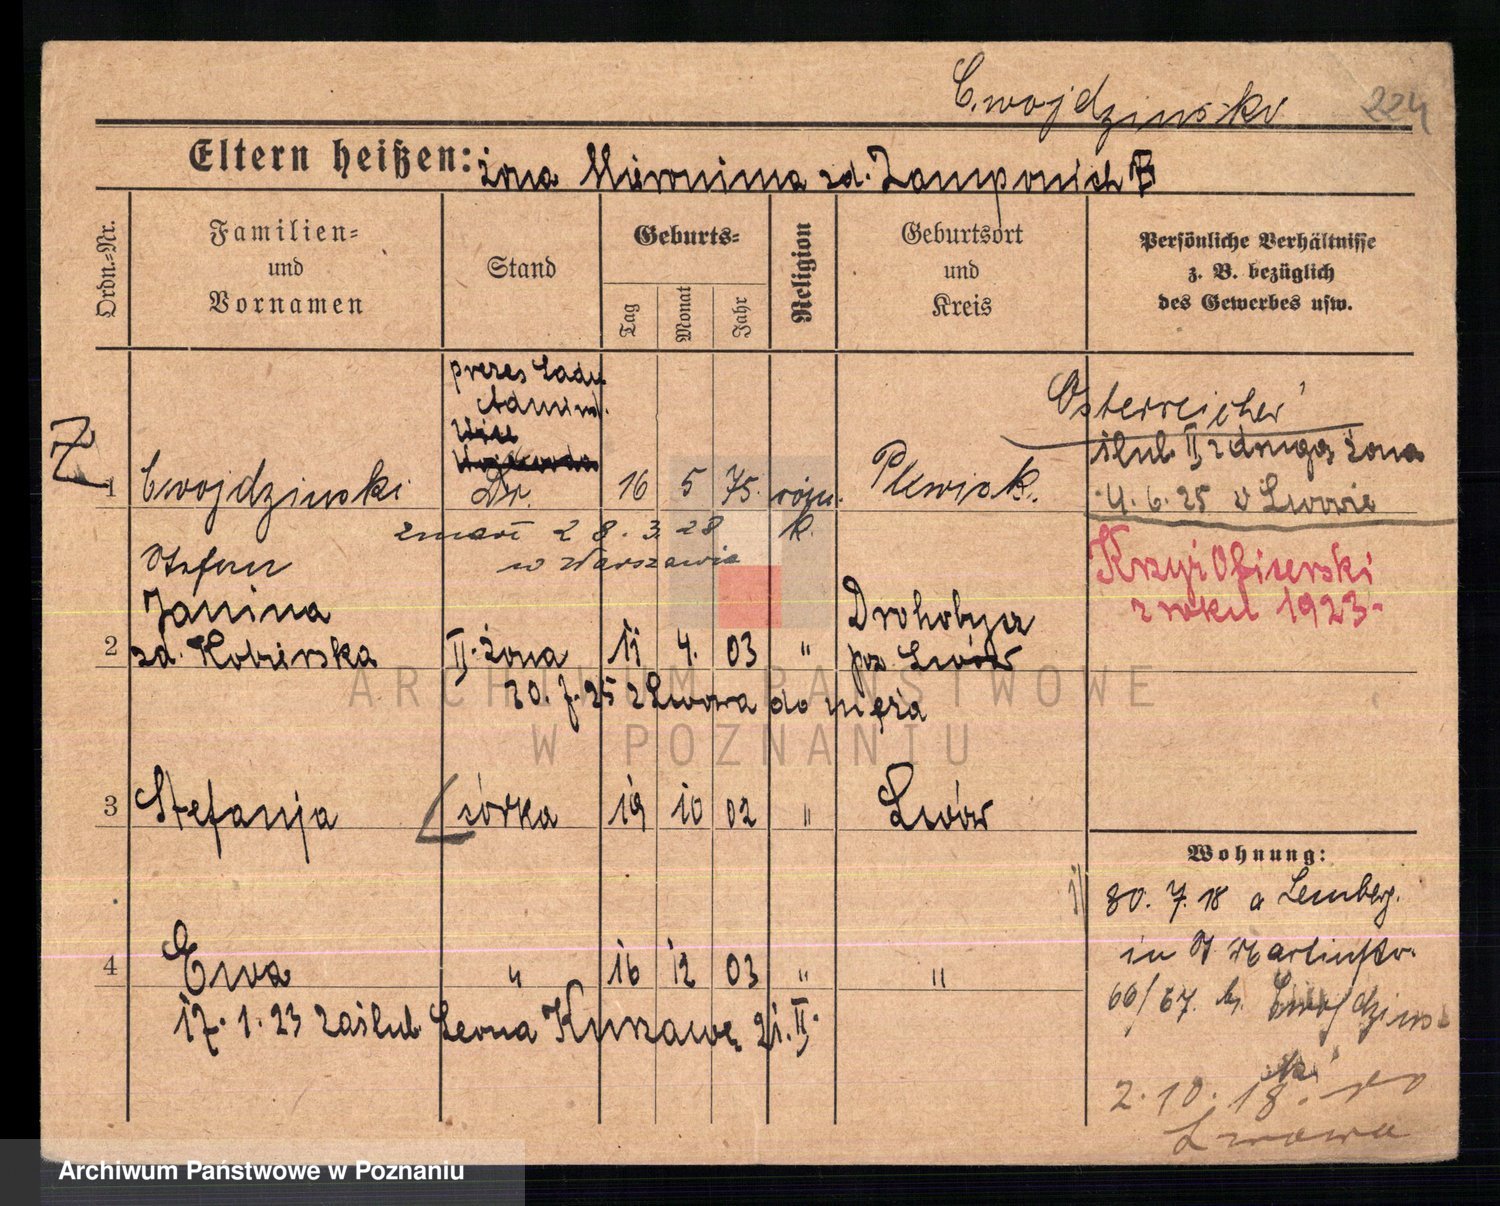 Cwojdzinski 224
Eltern heißen: żona Hieronima zd. Zamponich
Ordn.-Nr.
Familien-
und
Vornamen
Stand
Geburts-
Tag
Monat
Jahr
Religion
Geburtsort
und
Kreis
Persönliche Verhältnisse
z. B. bezüglich
des Gewerbes usw.
prezes Sądu
Admind.
Z
1 Cwojdzinski Dr. 16 5 75. rzym. k.
Österreicher
ślub II z drugą żoną
4. 6. 25 w Lwowie
zmarł 28.3.28
w Warszawie
Stefan
Krzyż Oficerski
z roku 1923-
Janina
2 zd. Kobierska II. żona 11 4. 03 " Drohobycz
pow Lwów
20.7.25 z Lwowa do męża
ARCHIWUM PAŃSTWOWE
W POZNANIU
3 Stefanja córka 19 10 02 " Lwów
4 Ewa " 16 12 03 " "
17.1.23 zaślub. Leona Kurzawę
Wohnung:
30.7.18 a Lemberg.
in St Martinstr.
66/67. b. Cwojdzinski
2.10.18. do
Lwowa
Archiwum Państwowe w Poznaniu